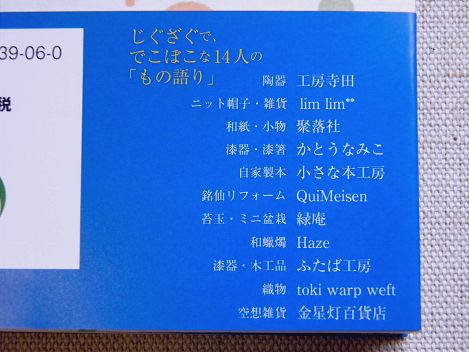 39-06-0
税
じぐざぐで、
でこぼこな14人の
「もの語り」
陶器 工房寺田
ニット帽子・雑貨 lim lim**
和紙・小物 聚落社
漆器・漆箸 かとうなみこ
自家製本 小さな本工房
銘仙リフォーム QuiMeisen
苔玉・ミニ盆栽 緑庵
和蠟燭 Haze
漆器・木工品 ふたば工房
織物 toki warp weft
空想雑貨 金星灯百貨店